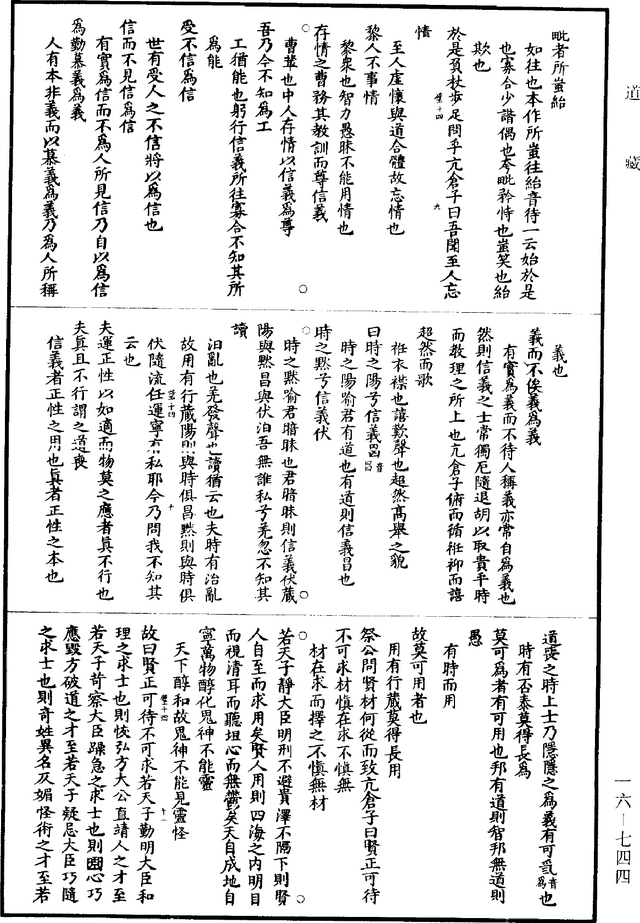 道藏
毗者所蚩紿
如往也本作所蚩往紿音待一云始於是
也寡合少諧偶也夸毗矜恃也蚩笑也紿
欺也
於是負杖步足問乎亢倉子曰吾聞至人忘
情
至人虛懷與道合體故忘情也
黎人不事情
黎衆也智力愚昧不能用情也
存情之曹務其教訓而尊信義
曹輩也中人存情以信義爲尊
吾乃今不知爲工
工猶能也躬行信義所往寡合不知其所
爲能
受不信爲信
世有受人之不信將以爲信也
信而不見信爲信
有實爲信而不爲人所見信乃自以爲信
爲勤慕義爲義
人有本非義而以慕義爲義乃爲人所稱
義也
義而不俟義爲義
有實爲義而不待人稱義亦常自爲義也
然則信義之士常獨厄隨退胡以取貴乎時
而教理之所上也亢倉子俯而循衽仰而譆
超然而歌
衽衣襟也譆歎聲也超然高舉之貌
曰時之陽兮信義昌音昌
時之陽喻君有道也有道則信義昌也
時之默兮信義伏
時之默喻君暗昧也君暗昧則信義伏藏
陽與默昌與伏汩吾無誰私兮羌忽不知其
讀
汩亂也羌發聲也讀猶云也夫時有治亂
故用有行藏陽則與時俱昌默則與時俱
伏隨流任運寧有私耶今乃問我不知其
云也
夫運正性以如適而物莫之應者真不行也
夫真且不行謂之道喪
信義者正性之用也真者正性之本也
道喪之時上士乃隱隱之爲義有可爲音爲也
時有否泰莫得長爲
莫可爲者有可用也邦有道則智邦無道則
愚
有時而用
故莫可用者也
用有行藏莫得長用
祭公問賢材何從而致亢倉子曰賢正可待
不可求材慎在求不慎無
材在求而擇之不慎無材
若天子靜大臣明刑不避貴澤不隔下則賢
人自至而求用矣賢人用則四海之内明目
而視清耳而聽坦心而無鬱矣天自成地自
寧萬物醇化鬼神不能靈
天下醇和故鬼神不能見靈怪
故曰賢正可待不可求若天子勤明大臣和
理之求士也則恢弘方大公直請人之才至
若天子苛察大臣躁急之求士也則圓心巧
應毀方破道之才至若天子疑忌大臣巧隨
之求士也則奇姓異名仄媚怪術之才至若
一六—七四四